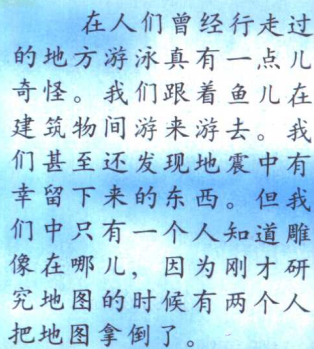 在人们曾经行走过
的地方游泳真有一点儿
奇怪。我们跟着鱼儿在
建筑物间游来游去。我
们甚至还发现地震中有
幸留下来的东西。但我
们中只有一个人知道雕
像在哪儿，因为刚才研
究地图的时候有两个人
把地图拿倒了。